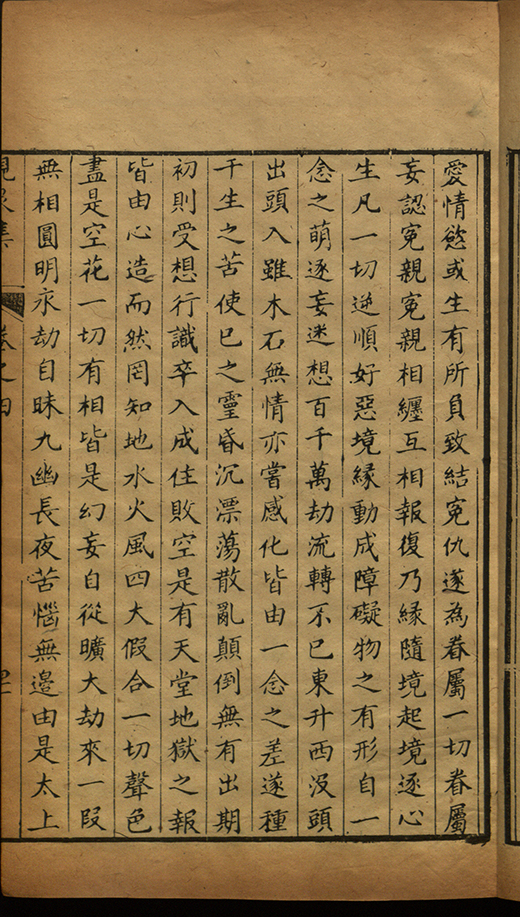 愛情慾或生有所負致結寃仇遂為眷屬一切眷屬
妄認寃親寃親相纏互相報復乃緣隨境起境逐心
生凡一切逆順好惡境緣動成障礙物之有形自一
念之萌逐妄迷想百千萬劫流轉不已東升西沒頭
出頭入雖木石無情亦嘗感化皆由一念之差遂種
千生之苦使巳之靈昏沉漂蕩散亂顛倒無有出期
初則受想行識卒入成住敗空是有天堂地獄之報
皆由心造而然罔知地水火風四大假合一切聲色
盡是空花一切有相皆是幻妄自從曠大劫來一段
無相圓明永劫自昧九幽長夜苦惱無邊由是太上
峴泉集 卷之四